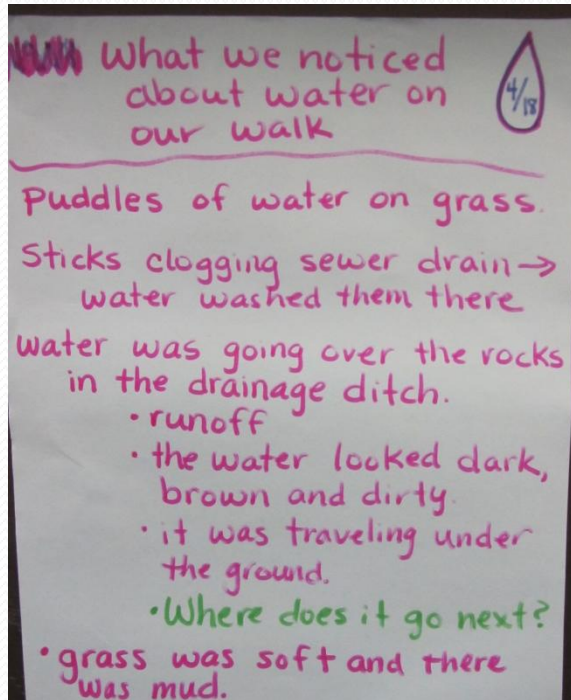 What we noticed
about water on
our walk
4/18
Puddles of water on grass.
Sticks clogging sewer drain→
water washed them there
water was going over the rocks
in the drainage ditch.
• runoff
• the water looked dark,
brown and dirty.
• it was traveling under
the ground.
• Where does it go next?
• grass was soft and there
was mud.